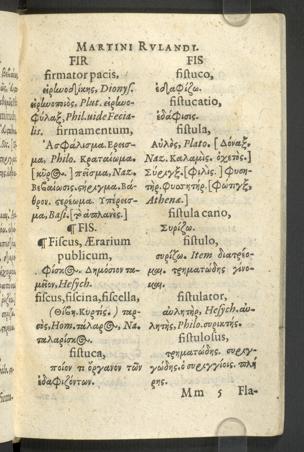 MARTINI RVLANDI.
FIR
firmator pacis,
εἰρηνοδίκης, Dionys.
εἰρηνοποιὸς, Plut. εἰρηνοφύλαξ, Phil. uide Fecialis.
firmamentum,
Ἀσφάλισμα. Ερεισμα, Philo. Κραταίωμα.
πεῖσμα, Naz.
Βεβαίωσις. στήριγμα. Βάθρον. στερέωμα. Υπέρεισμα, Basil.
¶ FIS.
¶ Fiscus, Ærarium
publicum,
Φίσκος. Δημόσιον ταμεῖον, Hesych.
fiscus, fiscina, fiscella,
Hom. τάλαρος, Na.
ταλαρίσκος.
fistuca,
ποῖον τι ὄργανον τῶν
ἐδαφιζόντων.
FIS
fistuco,
ἐδαφίζω.
fistucatio,
ἐδάφισις.
fistula,
Αὐλὸς, Plato. [Δόναξ,
Naz. Καλαμὶς. ὀχετὸς.]
Σύριγξ.
Athenæ.]
fistula cano,
Συρίζω.
fistulo,
συρίζω. Item
τρηματώδης γίνομαι.
fistulator,
αὐλητὴρ, Hesych. αὐλητὴς, Philo. συρικτὴς.
fistulosus,
τρηματώδης.
Mm 5 Fla-